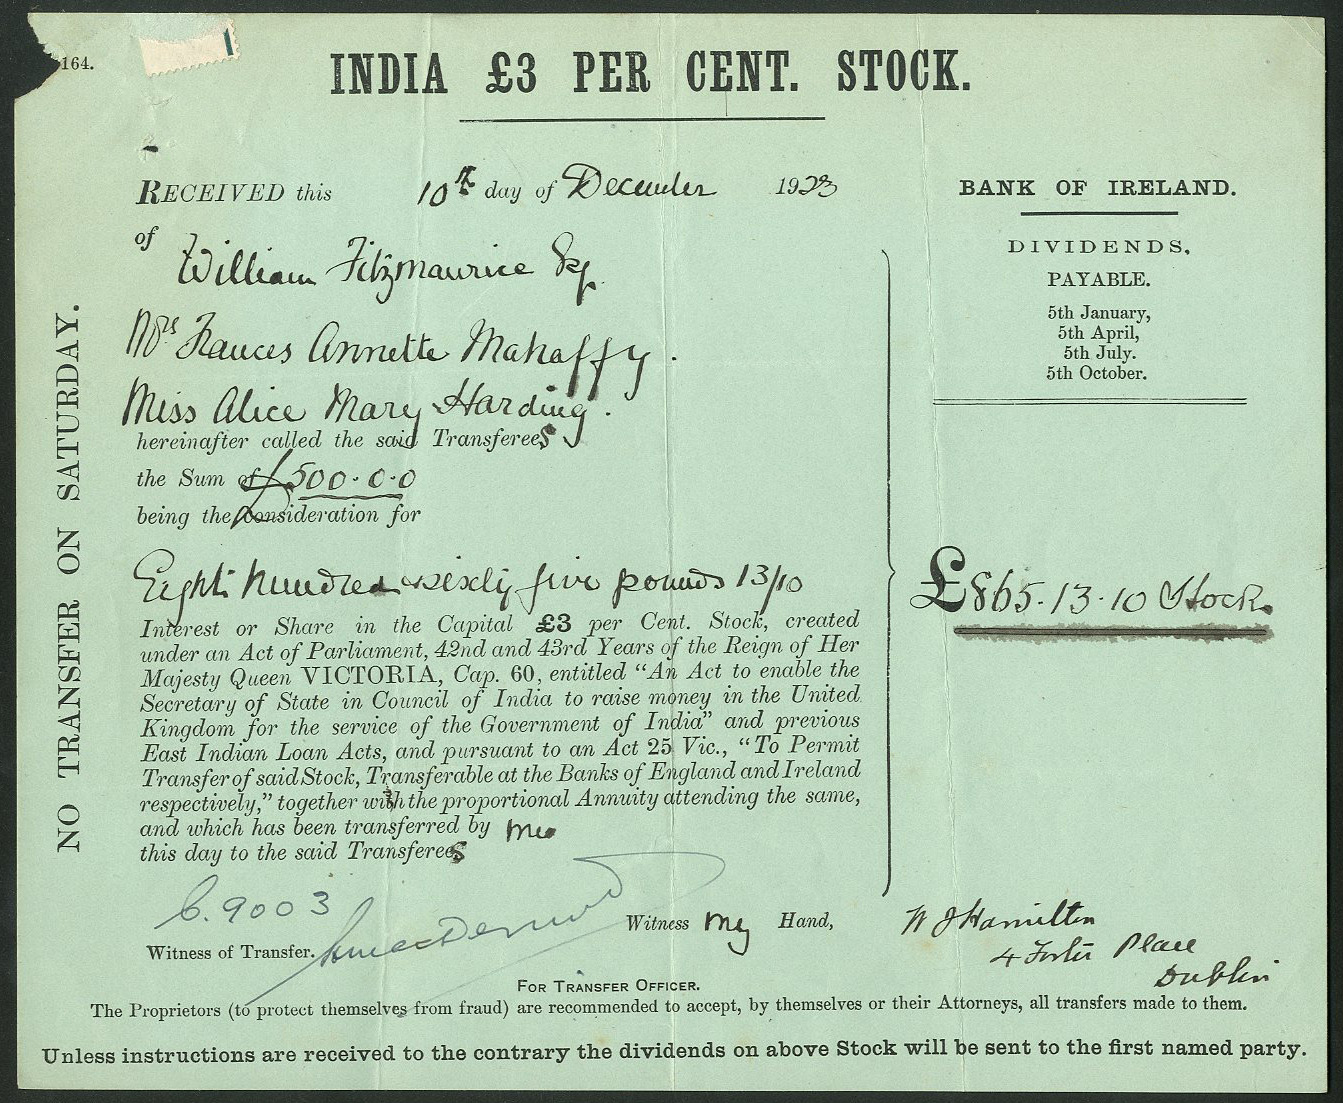 164.
INDIA £3 PER CENT. STOCK.
RECEIVED this 10th day of December 1923
of
William Fitzmaurice Esq.
Mrs Frances Annette Mahaffy.
Miss Alice Mary Harding.
hereinafter called the said Transferees
the Sum of £500.0.0
being the consideration for
Eight hundred & sixty five pounds 13/10
Interest or Share in the Capital £3 per Cent. Stock, created
under an Act of Parliament, 42nd and 43rd Years of the Reign of Her
Majesty Queen VICTORIA, Cap. 60, entitled "An Act to enable the
Secretary of State in Council of India to raise money in the United
Kingdom for the service of the Government of India" and previous
East Indian Loan Acts, and pursuant to an Act 25 Vic., "To Permit
Transfer of said Stock, Transferable at the Banks of England and Ireland
respectively," together with the proportional Annuity attending the same,
and which has been transferred by me
this day to the said Transferees
NO TRANSFER ON SATURDAY.
BANK OF IRELAND.
DIVIDENDS,
PAYABLE.
5th January,
5th April,
5th July.
5th October.
£865.13.10 Stock.
C.9003
Witness of Transfer.
Witness my Hand,
W J Hamilton
4 Foster Place
Dublin
FOR TRANSFER OFFICER.
The Proprietors (to protect themselves from fraud) are recommended to accept, by themselves or their Attorneys, all transfers made to them.
Unless instructions are received to the contrary the dividends on above Stock will be sent to the first named party.